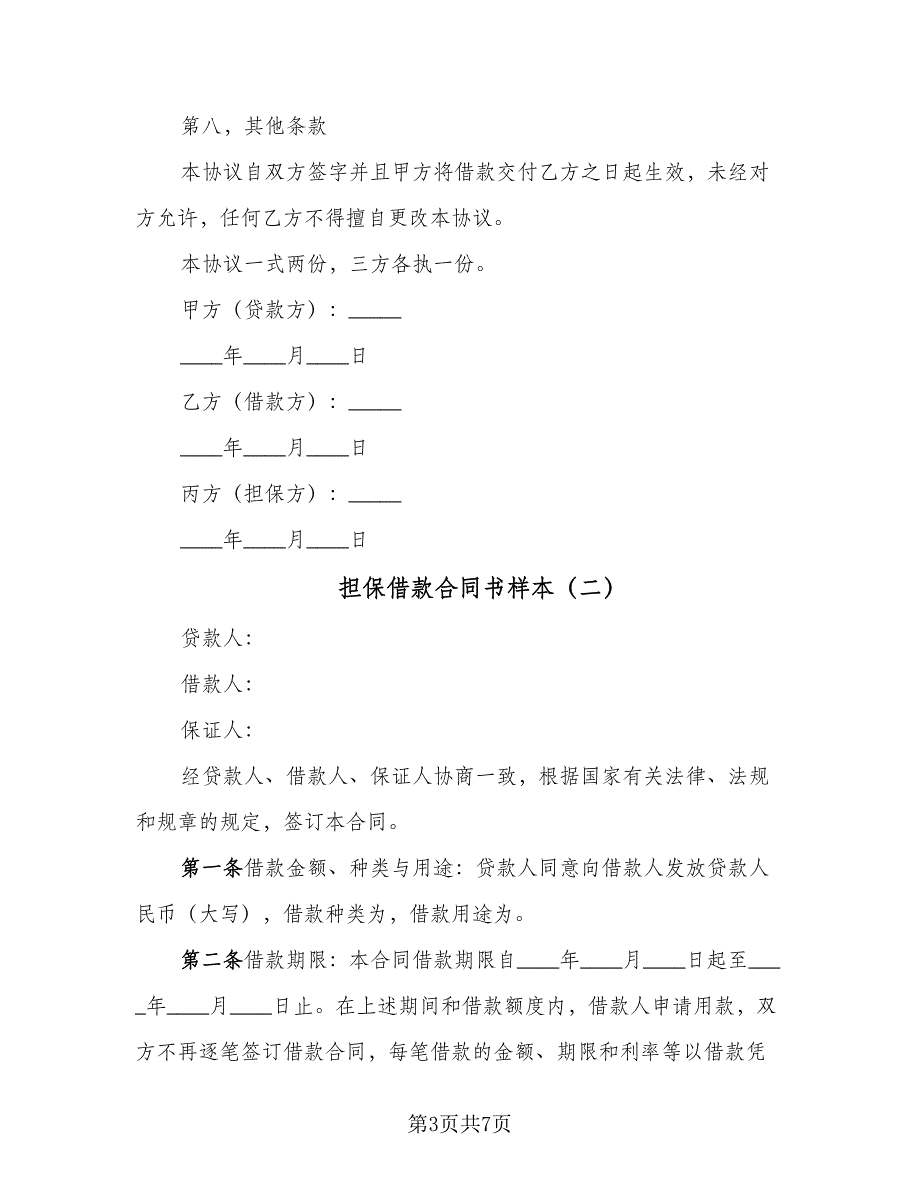 第八，其他条款
本协议自双方签字并且甲方将借款交付乙方之日起生效，未经对
方允许，任何乙方不得擅自更改本协议。
本协议一式两份，三方各执一份。
甲方（贷款方）：_____
____年____月____日
乙方（借款方）：_____
____年____月____日
丙方（担保方）：_____
____年____月____日
担保借款合同书样本（二）
贷款人：
借款人：
保证人：
经贷款人、借款人、保证人协商一致，根据国家有关法律、法规
和规章的规定，签订本合同。
第一条借款金额、种类与用途：贷款人同意向借款人发放贷款人
民币（大写），借款种类为，借款用途为。
第二条借款期限：本合同借款期限自____年____月____日起至___
_年____月____日止。在上述期间和借款额度内，借款人申请用款，双
方不再逐笔签订借款合同，每笔借款的金额、期限和利率等以借款凭
第3页共7页